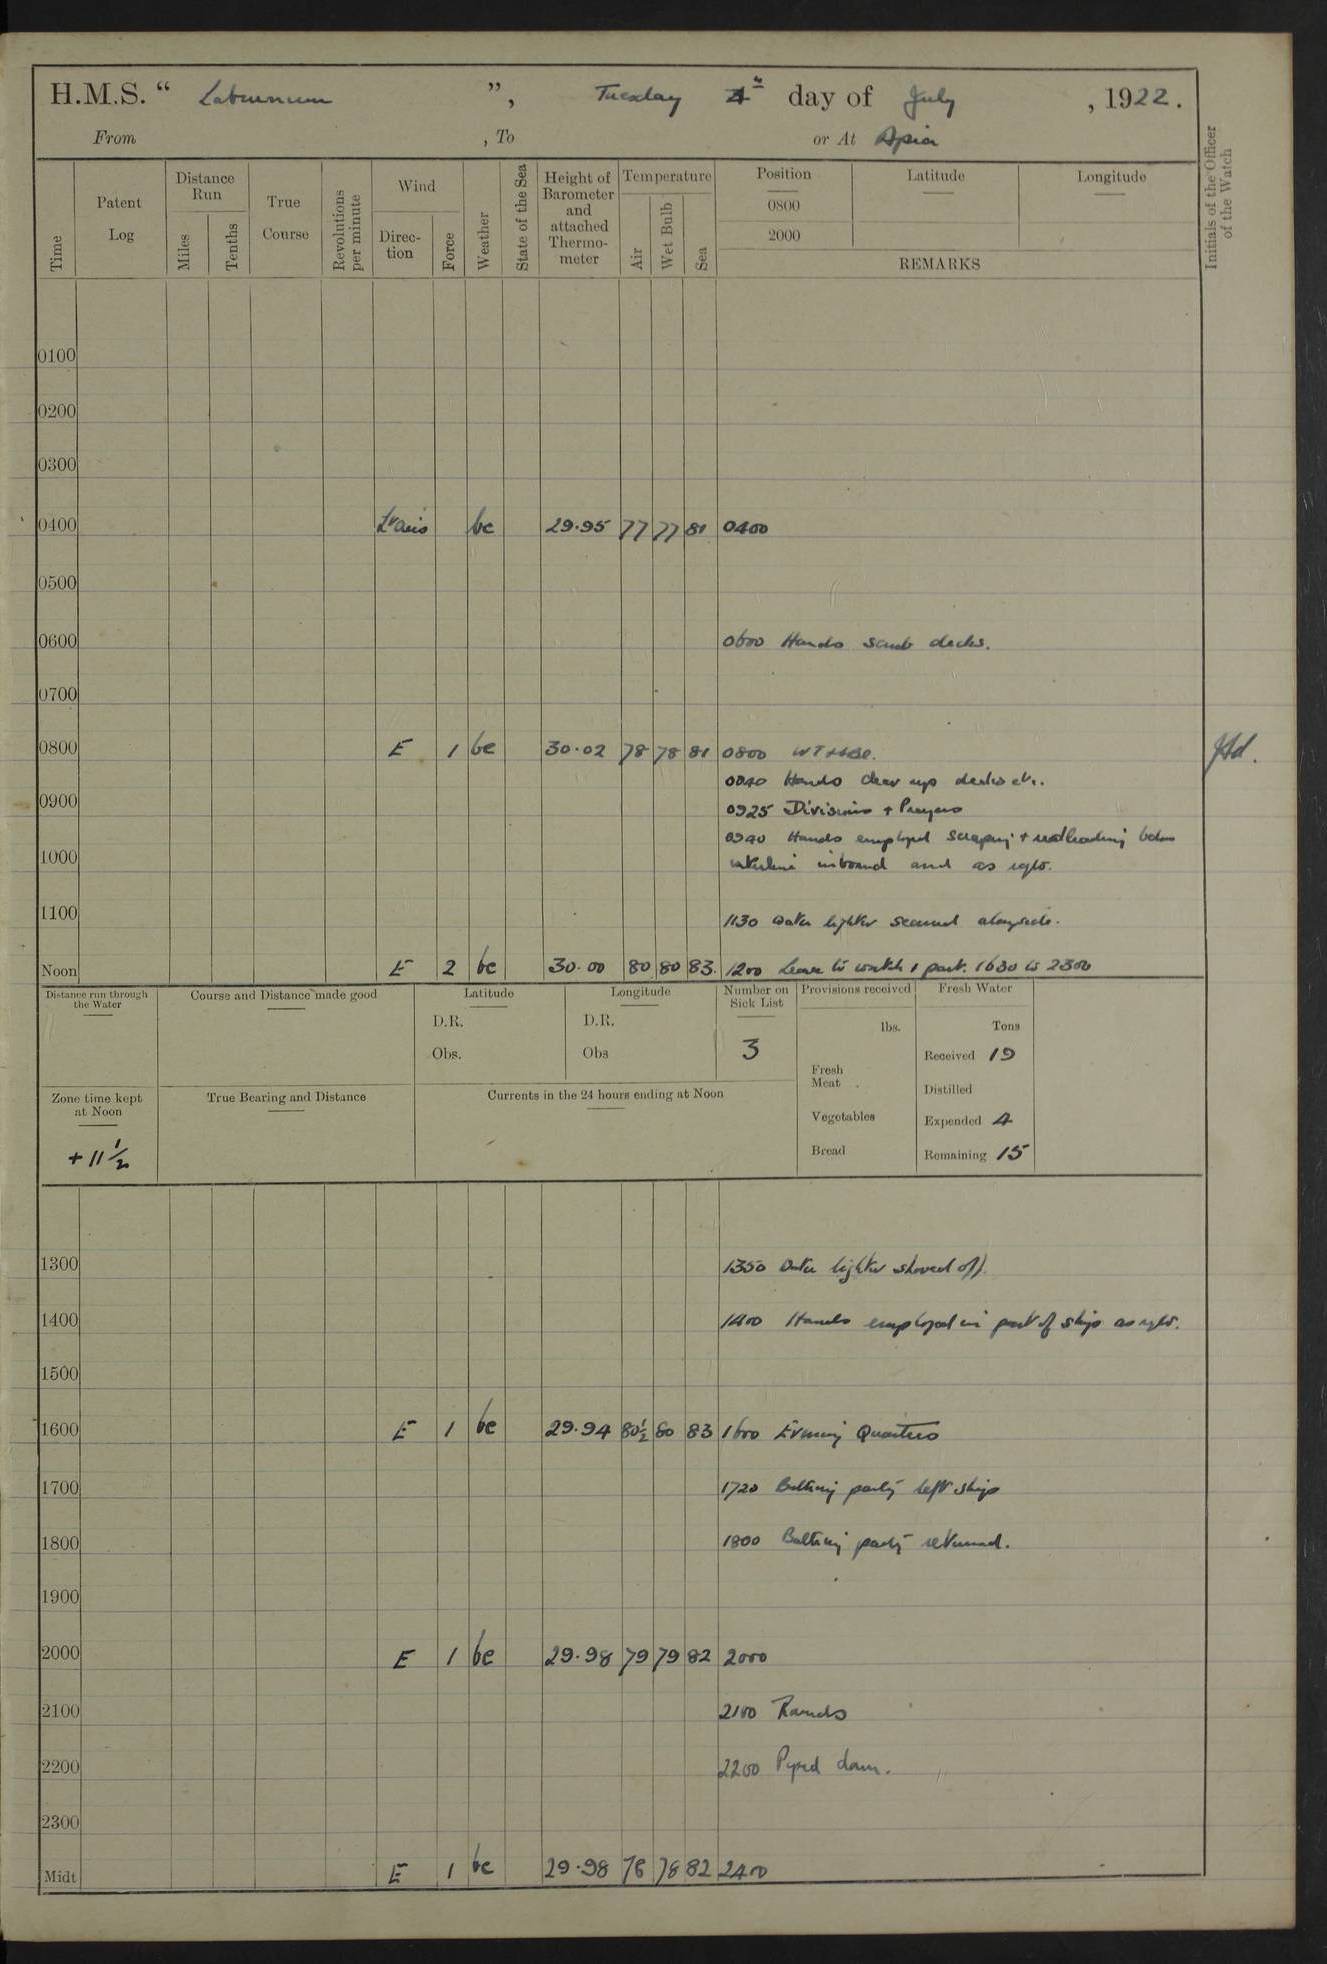 H.M.S. “ Laburnum ”, Tuesday 4th day of July , 1922.
From , To or At Apia
Time
Patent Log
Distance Run
Miles
Tenths
True Course
Revolutions per minute
Wind
Direction
Force
Weather
State of the Sea
Height of Barometer and attached Thermometer
Temperature
Air
Wet Bulb
Sea
Position
0800
2000
Latitude
Longitude
REMARKS
Initials of the Officer of the Watch
0100
0200
0300
0400 Lt airs bc 29.95 77 77 81 0400
0500
0600 0600 Hands scrub decks.
0700
0800 E 1 bc 30.02 78 78 81 0800
0840 Hands clear up decks etc.
0900 0925 Divisions + Prayers
0940 Hands employed scraping + redleading below
1000 waterline inboard and as reqte.
1100 1130 Water lighter secured alongside.
Noon E 2 bc 30.00 80 80 83 1200 Leave to watch 1 part. 1630 to 2300
Distance run through the Water
Course and Distance made good
Latitude
D.R.
Obs.
Longitude
D.R.
Obs
Number on Sick List
3
Provisions received
lbs.
Fresh Meat
Vegetables
Bread
Fresh Water
Tons
Received 19
Distilled
Expended 4
Remaining 15
Zone time kept at Noon
+ 11 1/2
True Bearing and Distance
Currents in the 24 hours ending at Noon
1300 1350 Water lighter shoved off.
1400 1400 Hands employed in part of ship as reqte.
1500
1600 E 1 bc 29.94 80½ 80 83 1600 Evening Quarters
1700 1720 Bathing party left ship
1800 1800 Bathing party returned.
1900
2000 E 1 bc 29.98 79 79 82 2000
2100 2100 Rounds
2200 2200 Piped down.
2300
Midt E 1 bc 29.98 78 78 82 2400